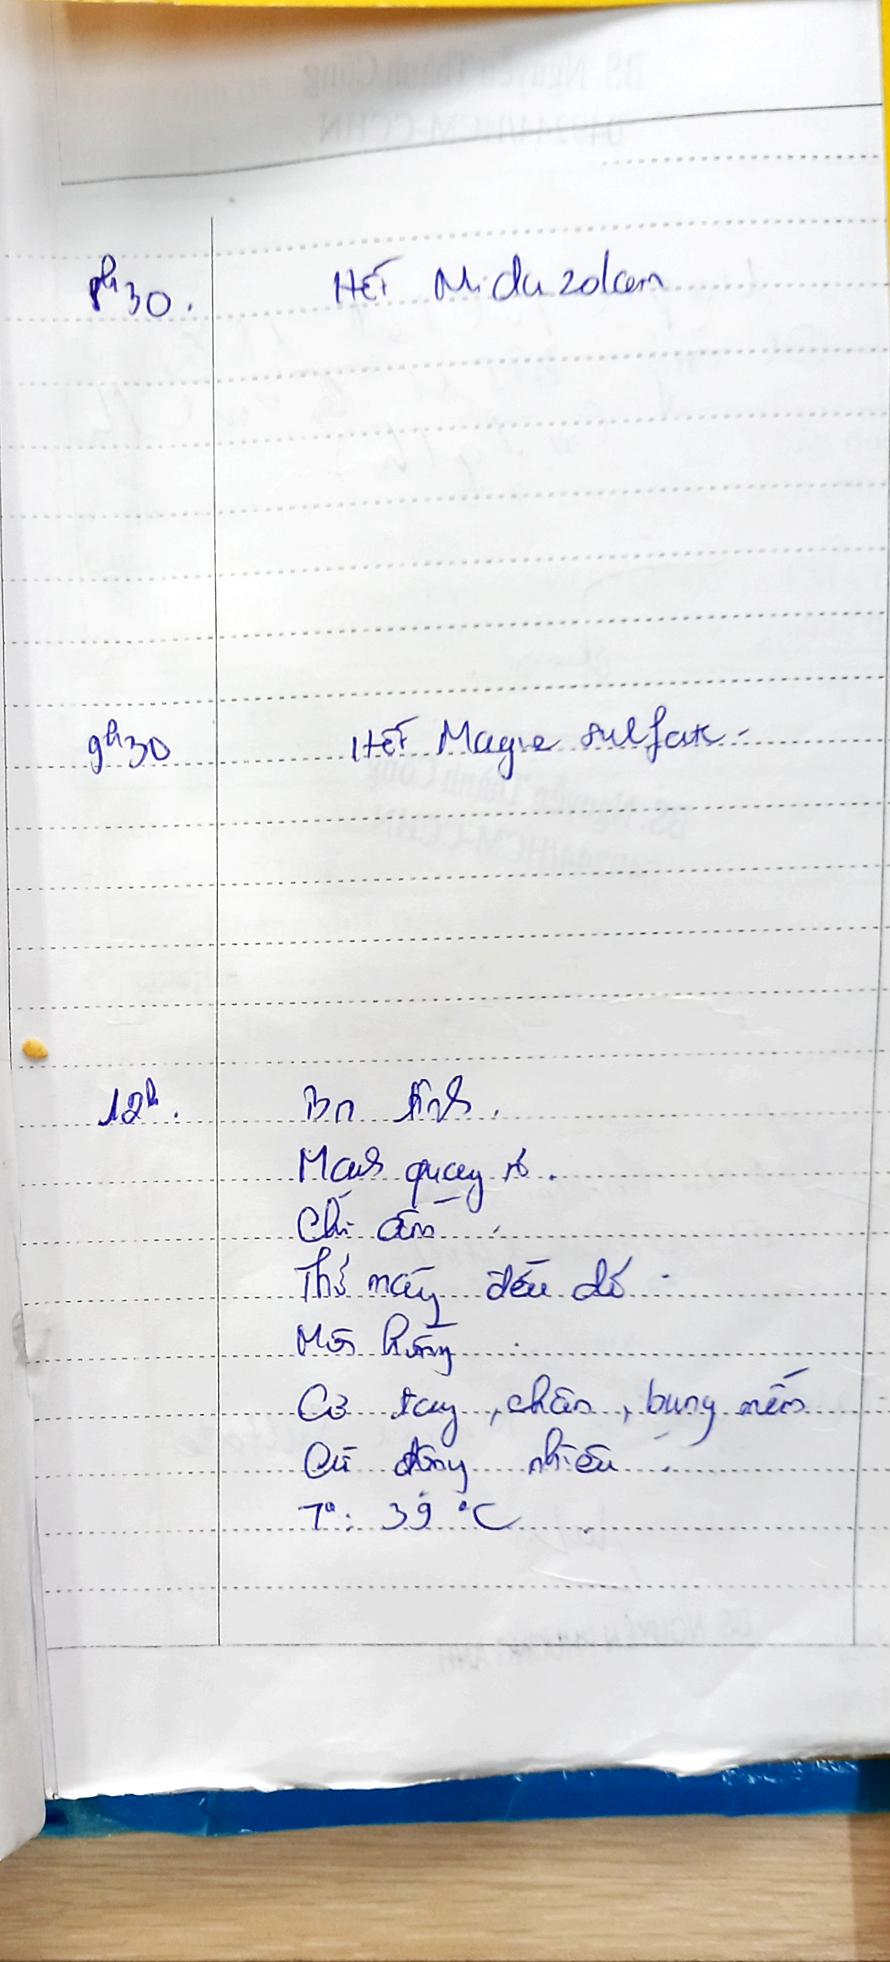 8h30. Hết Midazolam
9h30 Hết Magie sulfate -
12h. Bn tỉnh.
Mạch quay rõ.
Chi ấm.
Thở máy đều
Môi hồng.
Cơ tay, chân, bụng mềm
Cử động nhiều.
T°: 39 °C